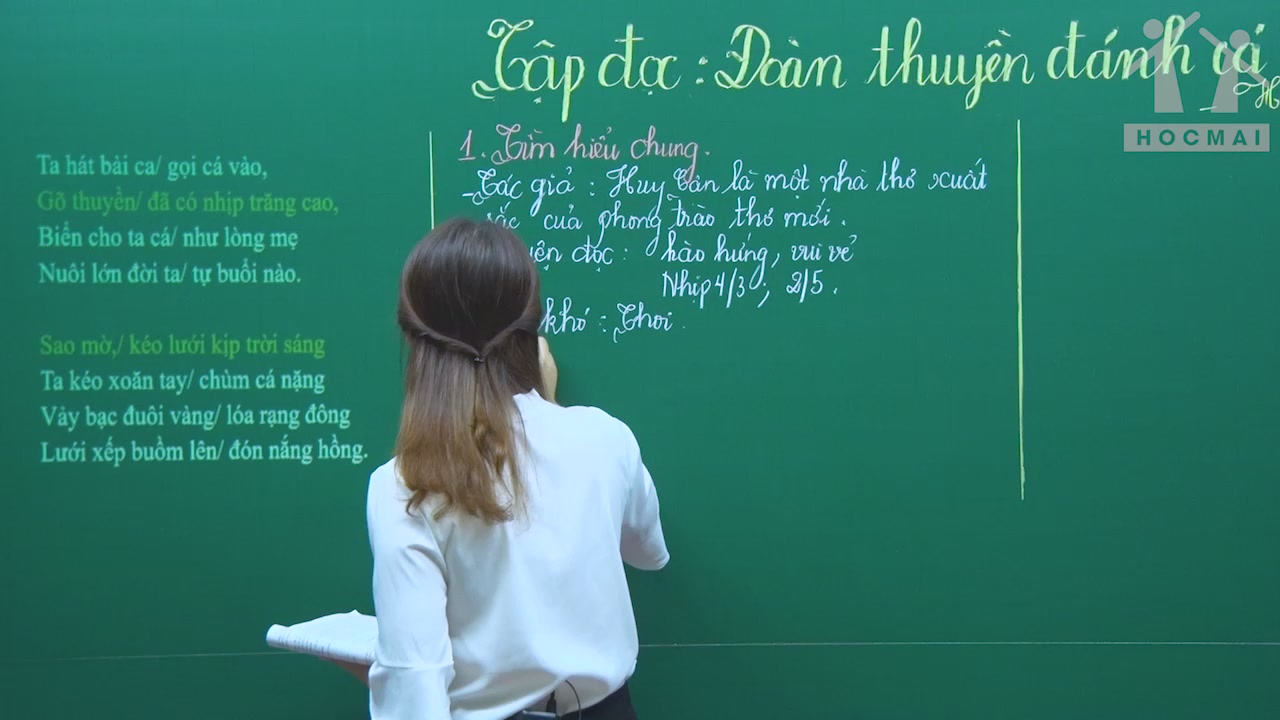 Tập đọc : Đoàn thuyền đánh cá
HOCMAI
Ta hát bài ca/ gọi cá vào,
Gõ thuyền/ đã có nhịp trăng cao,
Biển cho ta cá/ như lòng mẹ
Nuôi lớn đời ta/ tự buổi nào.
Sao mờ,/ kéo lưới kịp trời sáng
Ta kéo xoăn tay/ chùm cá nặng
Vảy bạc đuôi vàng/ lóa rạng đông
Lưới xếp buồm lên/ đón nắng hồng.
1. Tìm hiểu chung.
- Tác giả : Huy Cận là một nhà thơ xuất
sắc của phong trào thơ mới.
đọc : hào hứng, vui vẻ
Nhịp 4/3 ; 2/5.
khó : Thoi